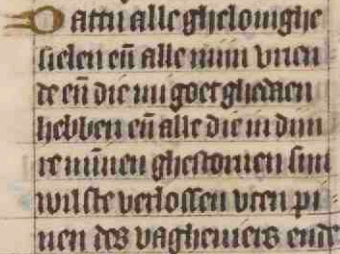 Dattu alle ghelouighe
sielen en̄ alle mijn vrien
de en̄ die mi goet ghedaen
hebben en̄ alle die in dijn
re minnen ghestoruen sijn
wilste verlossen vten pi-
nen des vagheuiers ende